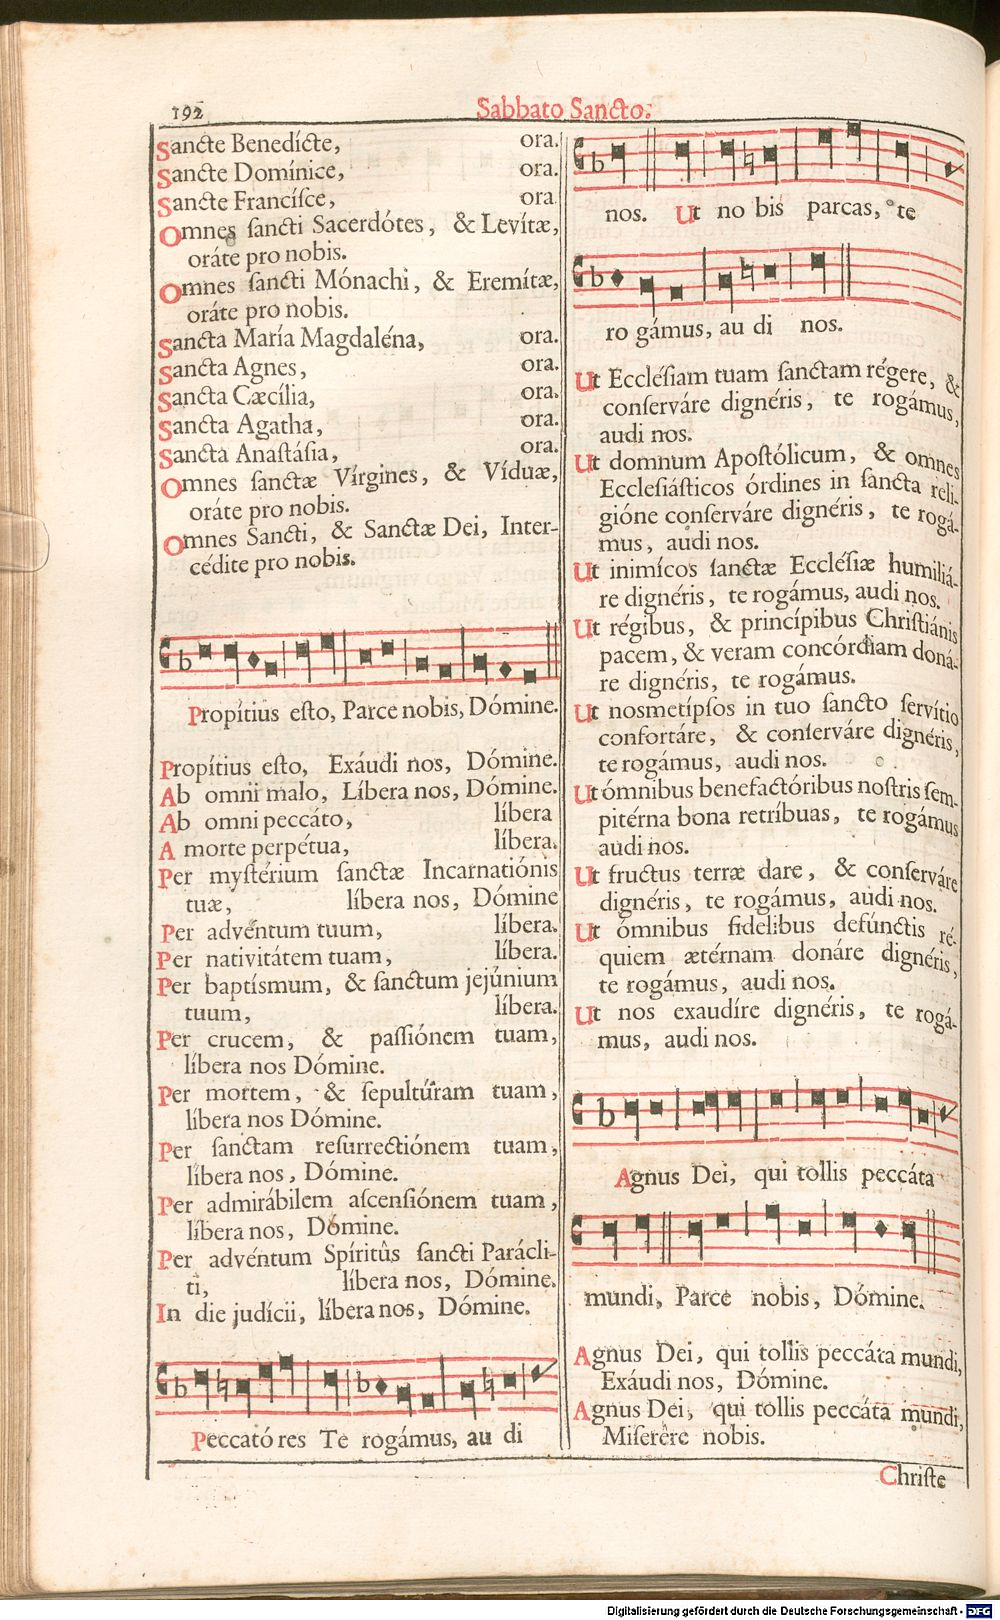 192
Sabbato Sancto.
Sancte Benedícte, ora.
Sancte Domínice, ora.
Sancte Francíſce, ora
Omnes ſancti Sacerdótes, & Levítæ,
oráte pro nobis.
Omnes ſancti Mónachi, & Eremítæ,
oráte pro nobis.
Sancta María Magdaléna, ora.
Sancta Agnes, ora.
Sancta Cæcília, ora.
Sancta Agatha, ora.
Sancta Anaſtáſia, ora.
Omnes ſanctæ Vírgines, & Víduæ,
oráte pro nobis.
Omnes Sancti, & Sanctæ Dei, Inter-
cédite pro nobis.
Propítius eſto, Parce nobis, Dómine.
Propítius eſto, Exáudi nos, Dómine.
Ab omni malo, Líbera nos, Dómine.
Ab omni peccáto, líbera
A morte perpétua, líbera.
Per myſtérium ſanctæ Incarnatiónis
tuæ, líbera nos, Dómine
Per advéntum tuum, líbera.
Per nativitátem tuam, líbera.
Per baptíſmum, & ſanctum jejúnium
tuum, líbera.
Per crucem, & paſſiónem tuam,
líbera nos Dómine.
Per mortem, & ſepultúram tuam,
líbera nos Dómine.
Per ſanctam reſurrectiónem tuam,
líbera nos, Dómine.
Per admirábilem aſcenſiónem tuam,
líbera nos, Dómine.
Per advéntum Spíritûs ſancti Parácli-
ti, líbera nos, Dómine.
In die judícii, líbera nos, Dómine.
Peccató res Te rogámus, au di
nos. Ut no bis parcas, te
ro gámus, au di nos.
Ut Eccléſiam tuam ſanctam régere, &
conſerváre dignéris, te rogámus,
audi nos.
Ut domnum Apoſtólicum, & omnes
Eccleſiáſticos órdines in ſancta reli-
gióne conſerváre dignéris, te rogá-
mus, audi nos.
Ut inimícos ſanctæ Eccléſiæ humiliá-
re dignéris, te rogámus, audi nos.
Ut régibus, & princípibus Chriſtiánis
pacem, & veram concórdiam doná-
re dignéris, te rogámus.
Ut noſmetípſos in tuo ſancto ſervítio
confortáre, & conſerváre dignéris,
te rogámus, audi nos.
Ut ómnibus benefactóribus noſtris ſem-
pitérna bona retríbuas, te rogámus
audi nos.
Ut fructus terræ dare, & conſerváre
dignéris, te rogámus, audi nos.
Ut ómnibus fidelibus defúnctis ré-
quiem ætérnam donáre dignéris,
te rogámus, audi nos.
Ut nos exaudíre dignéris, te rogá-
mus, audi nos.
Agnus Dei, qui tollis peccáta
mundi, Parce nobis, Dómine.
Agnus Dei, qui tollis peccáta mundi,
Exáudi nos, Dómine.
Agnus Dei, qui tollis peccáta mundi,
Miſerére nobis.
Chriſte
Digitalisierung gefördert durch die Deutsche Forschungsgemeinschaft - DFG